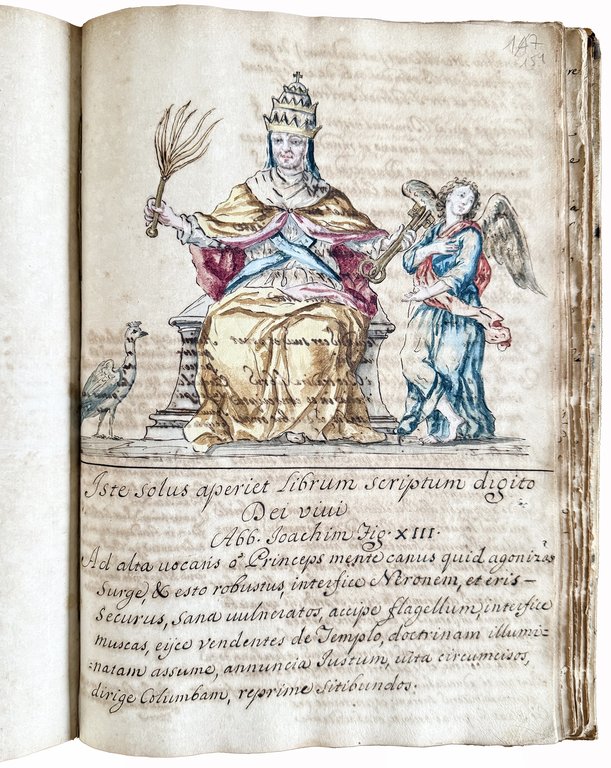 147
151
Iste solus aperiet Librum scriptum digito
Dei viui
Abb. Joachim Fig. XIII.
Ad alta uocaris ò Princeps mente canus quid agonizas
Surge, & esto robustus, interfice Neronem, et eris –
Securus, sana uulneratos, accipe flagellum, interfice
muscas, eijce vendentes de Templo, doctrinam illumi-
-natam assume, annuncia Justum, uita circumcisos,
dirige Columbam, reprime sitibundos.